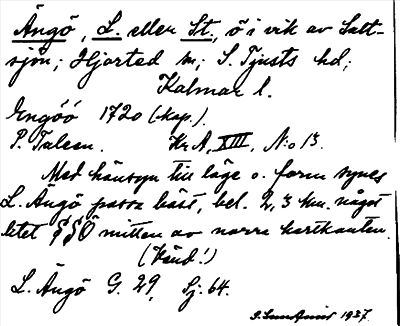 Ängö, L. eller St., ö i vik av Salt-
sjön; Hjorted sn; S. Tjusts hd;
Kalmar l.
Engöö 1720 (kap.).
P. Kr.A, XIII, N:o 13.
Med hänsyn till läge o. form synes
L. Ängö passa bäst, bel. 2,3 km. något
litet SSÖ mitten av norra kartkanten.
(Vänd!)
L. Ängö G. 29, Sj. 64.
1937.